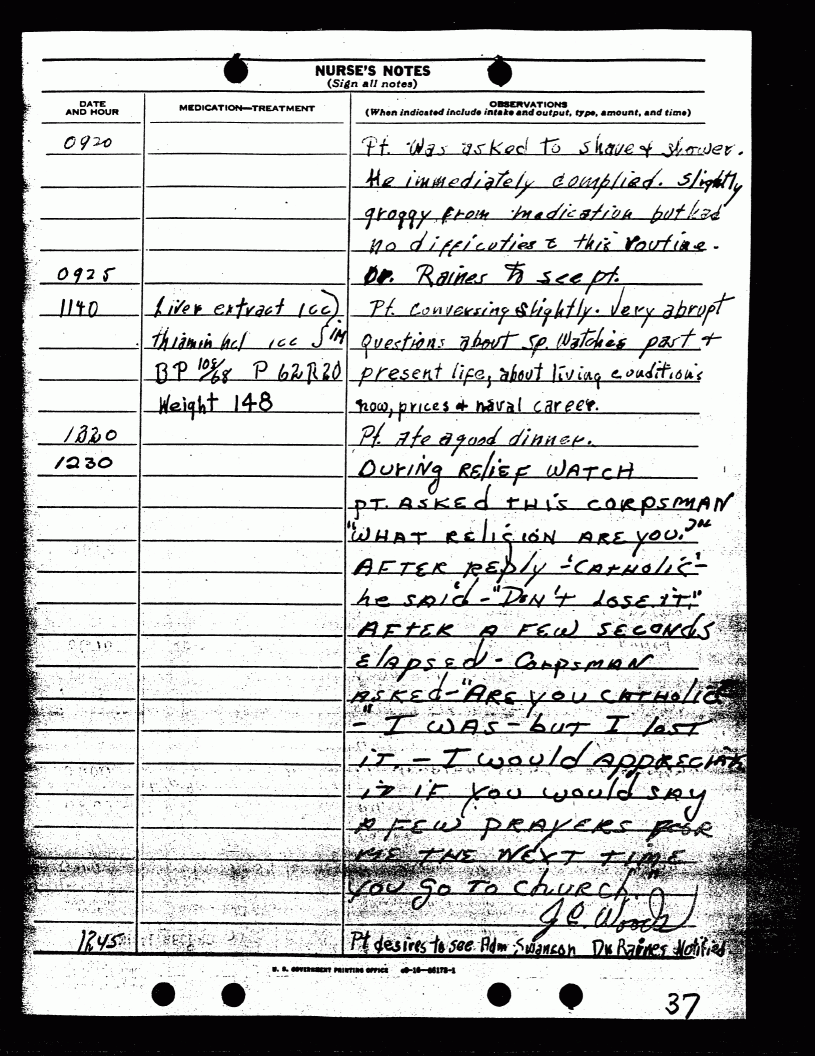 NURSE'S NOTES
(Sign all notes)
DATE AND HOUR
MEDICATION—TREATMENT
OBSERVATIONS
(When indicated include intake and output, type, amount, and time)
0920 Pt. Was asked to shave & shower.
He immediately complied. Slightly
groggy from medication but had
no difficuties c̄ this routine.
0925 Dr. Raines to see pt.
1140 Liver extract 1cc) Pt. Conversing slightly. Very abrupt
thiamin hcl 1cc IM questions about sp. Watches past &
BP 108/68 P 62 R20 present life, about living conditions
Weight 148 now, prices & naval career.
1320 Pt. Ate a good dinner.
1230 DURING RELIEF WATCH
PT. ASKED THIS CORPSMAN
"WHAT RELIGION ARE YOU?"
AFTER REPLY -'CATHOLIC'-
he SAID -"DON'T LOSE IT."
AFTER A FEW SECONDS
ELAPSED - CORPSMAN
ASKED-"ARE YOU CATHOLIC
-"I WAS - but I lost
IT. - I would APPRECIATE
IT IF YOU WOULD SAY
A FEW PRAYERS FOR
ME THE NEXT TIME
YOU GO TO CHURCH"
J.C. Woods
1245 Pt desires to see Adm Swanson Dr Raines Notified
U. S. GOVERNMENT PRINTING OFFICE
37